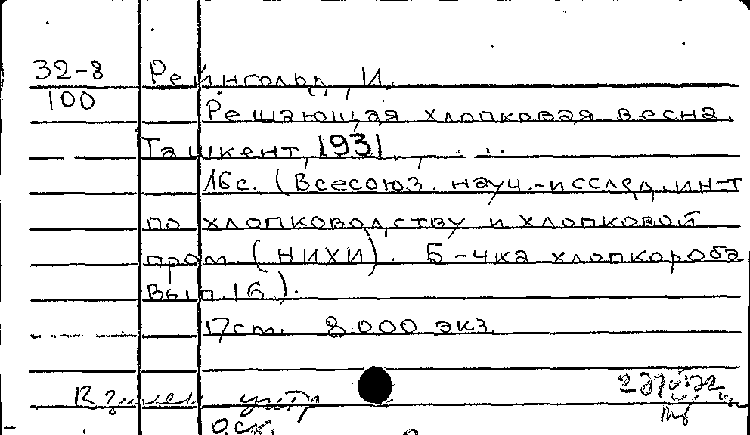 32-8 Рейнгольд, И.
100 Решающая хлопковая весна.
Ташкент, 1931.
16с. (Всесоюз. науч.-исслед. ин-т
по хлопководству и хлопковой
пром (НИХИ). Б-чка хлопкороба
Вып. 16).
17см. 8.000 экз.